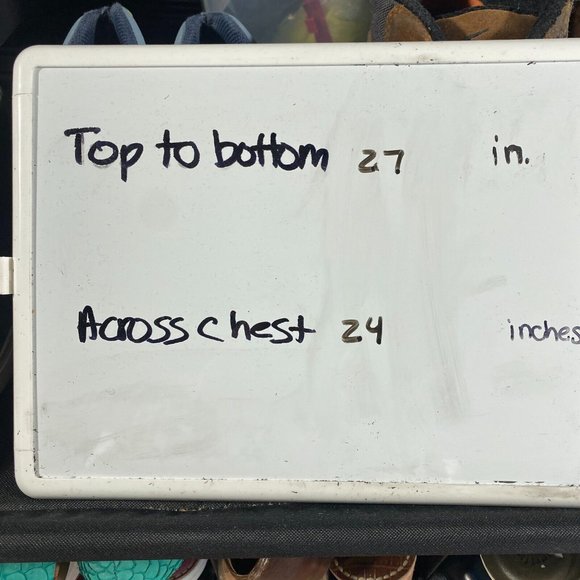 Top to bottom 27 in.
Across chest 24 inches